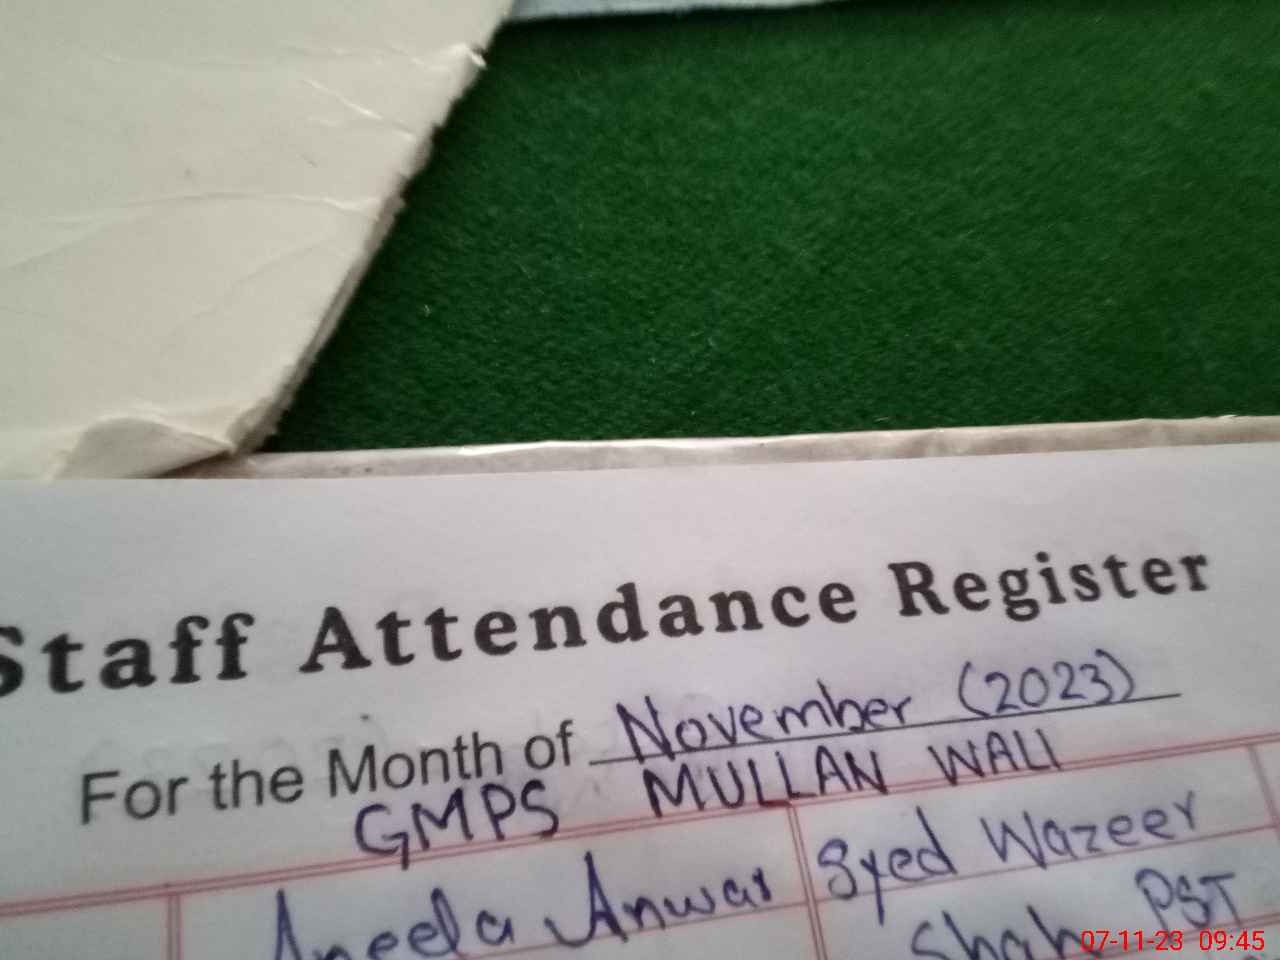 Staff Attendance Register
For the Month of November (2023)
GMPS MULLAN WALI
Aneela Anwar
Syed Wazeer
Shah PST
07-11-23 09:45